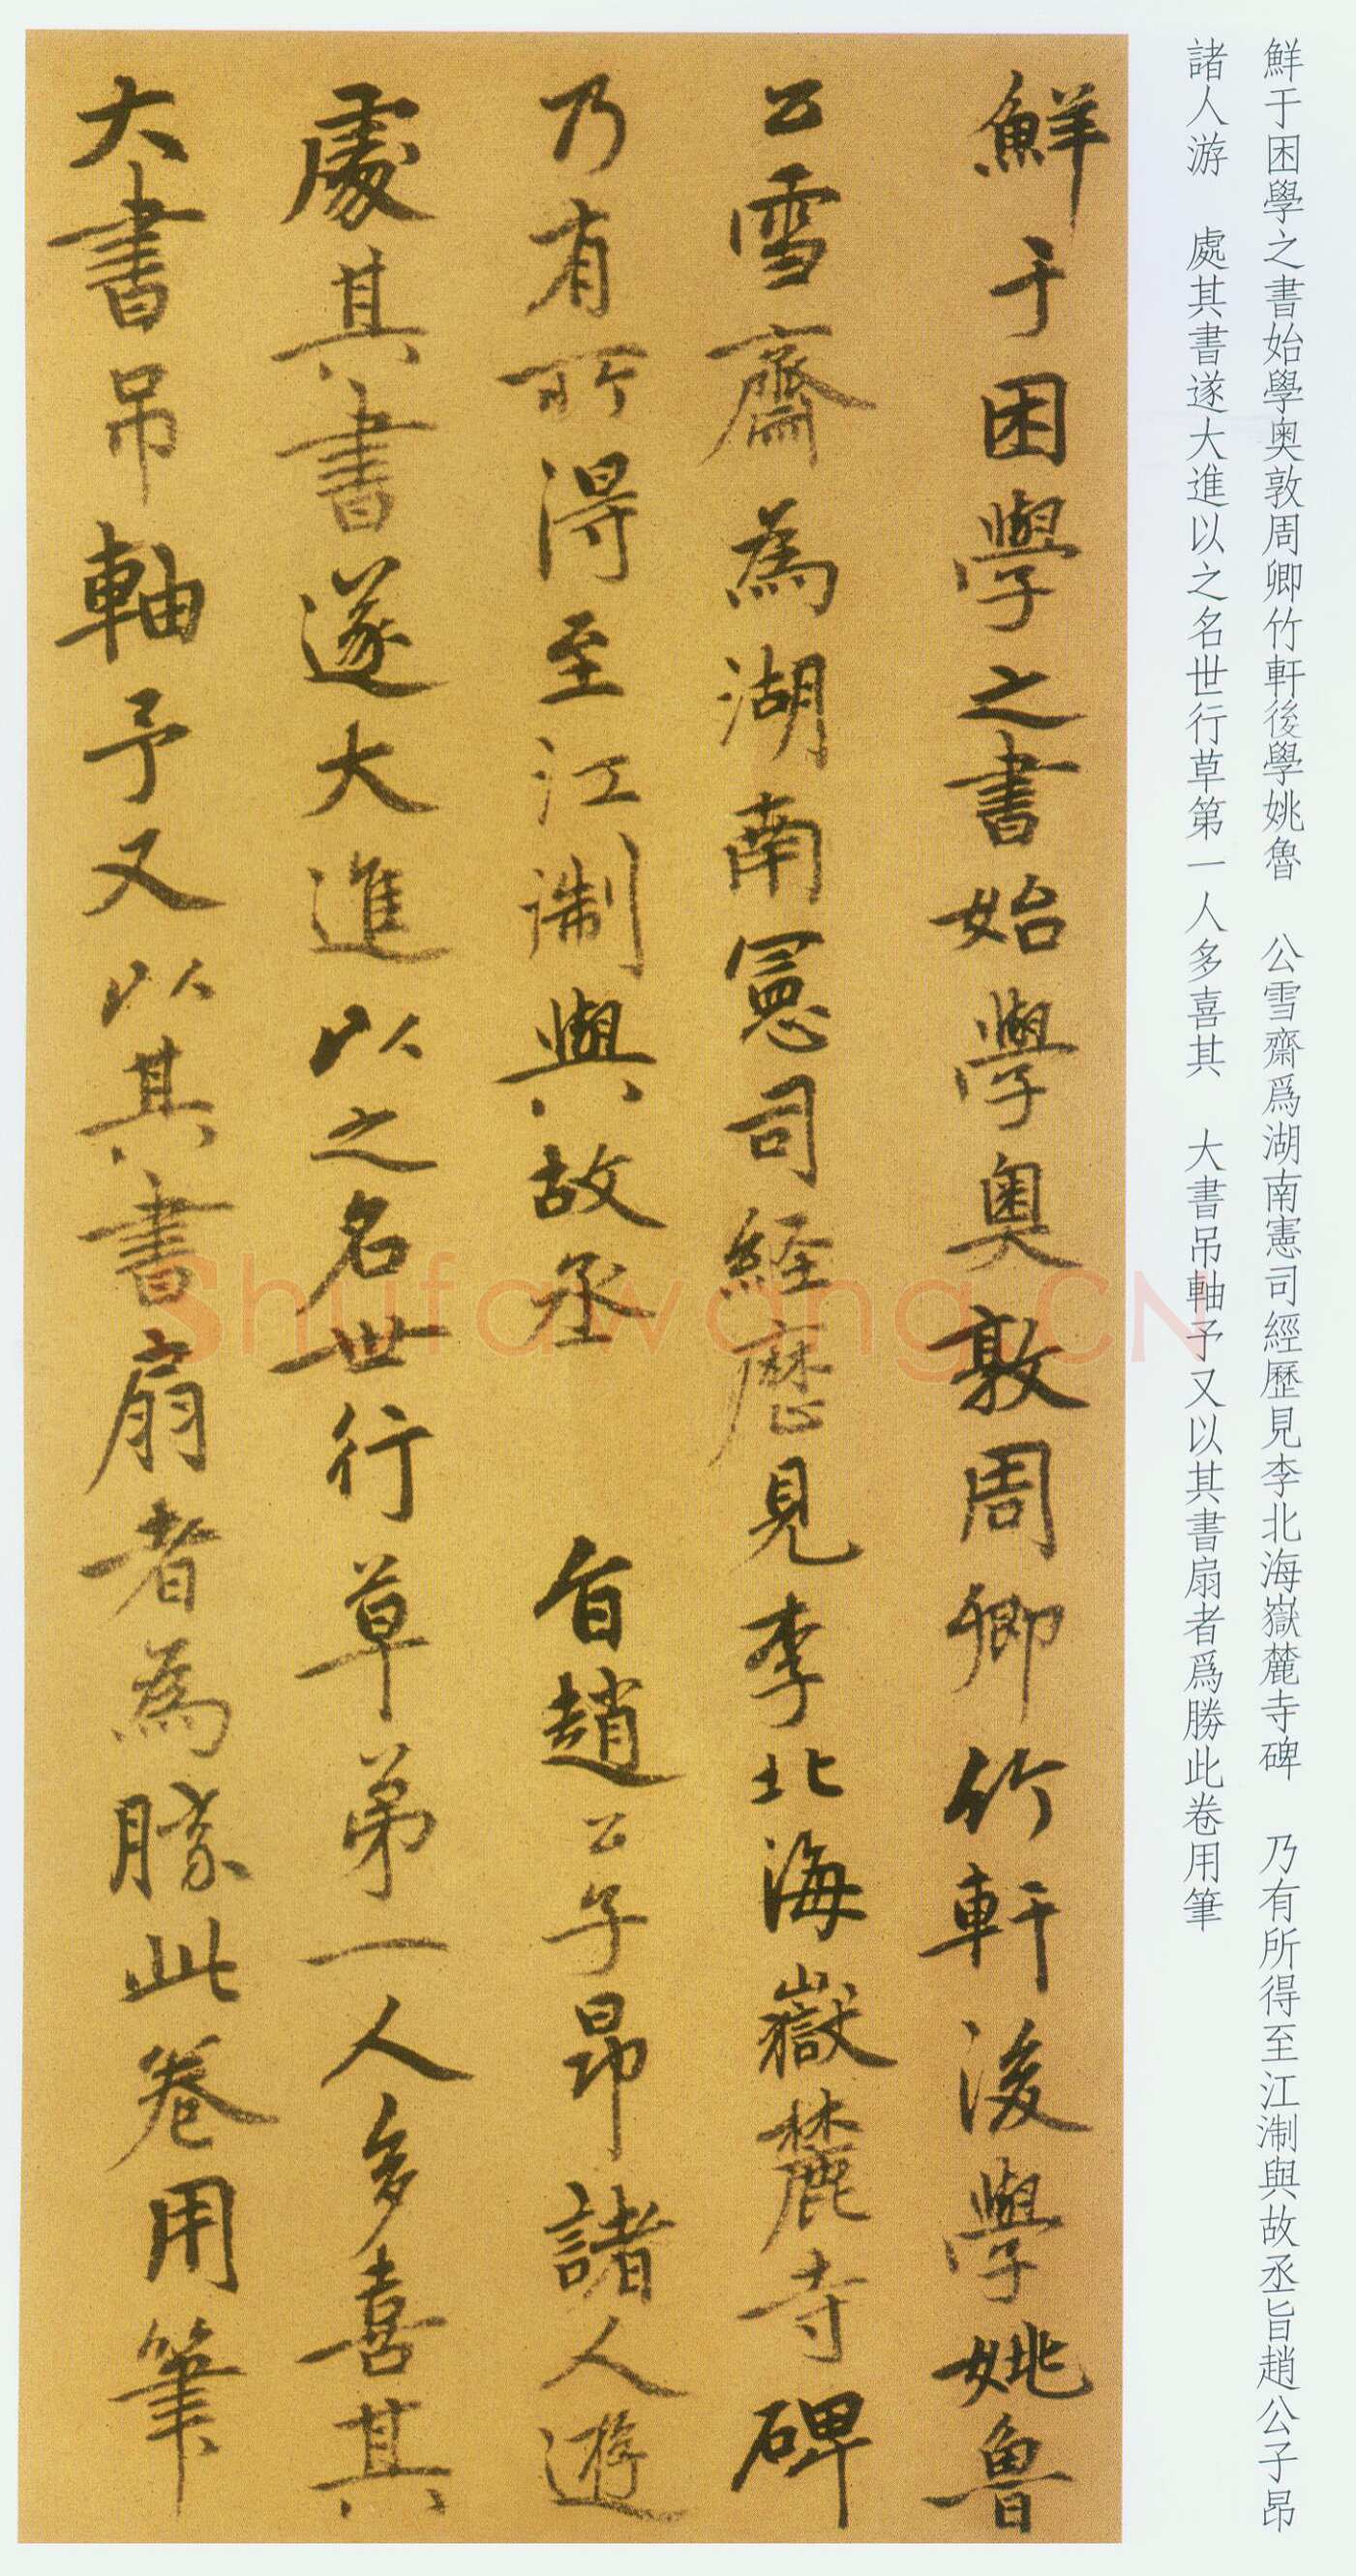 鮮于困學之書始學奧敦周卿竹軒後學姚魯　公雪齋爲湖南憲司經歷見李北海嶽麓寺碑　乃有所得至江淛與故丞旨趙公子昂
諸人游　處其書遂大進以之名世行草第一人多喜其　大書吊軸予又以其書扇者爲勝此卷用筆
鮮于困學之書始學奧敦周卿竹軒後學姚魯
公雪齋為湖南憲司經歷見李北海嶽麓寺碑
乃有所得至江淛與故丞　旨趙公子昂諸人遊
處其書遂大進以之名世行草第一人多喜其
大書吊軸予又以其書扇者為勝此卷用筆
Shufawang.CN